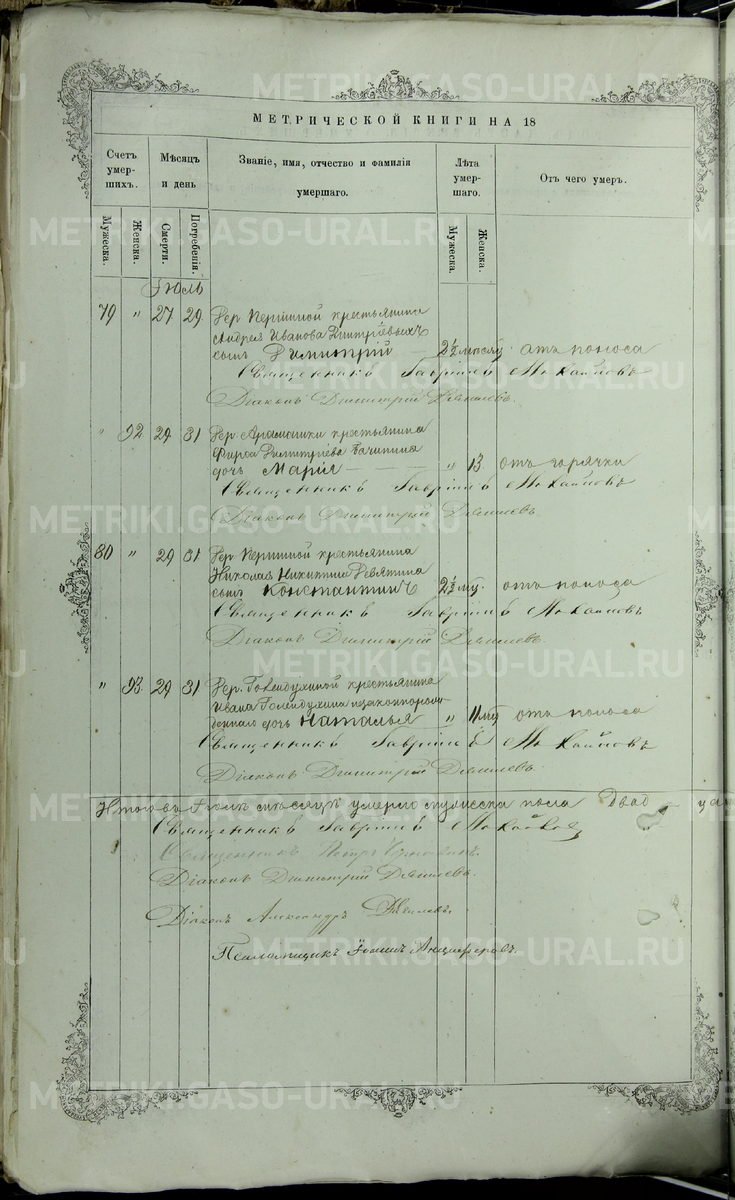 МЕТРИЧЕСКОЙ КНИГИ НА 18
Счетъ умер-шихъ.
Мѣсяцъ и день
Званіе, имя, отчество и фамилія умершаго.
Лѣта умер-шаго.
Отъ чего умеръ.
Мужеска.
Женска.
Смерти.
Погребенія.
Мужеска.
Женска.
Іюль
79 " 27 29 Дер. Першиной крестьянина
Андрея Иванова Дмитріевыхъ
сынъ Димитрій 2½ мѣсяц. отъ поноса
Священникъ Гавріилъ
Діаконъ Димитрій
" 92 29 31 Дер. Арамашки крестьянина
Фирса Димитріева
дочь Марія " 13 отъ горячки
Священникъ Гавріилъ
Діаконъ Димитрій
80 " 29 31 Дер. Першиной крестьянина
Николая Никитина Ревятина
сынъ Константинъ 2½ мц. отъ поноса
Священникъ Гавріилъ
Діаконъ Димитрій
" 93 29 31 Дер. Голендухиной крестьянина
Ивана Голендухина незаконнорож-
деннаго дочь Наталья " 11 мц отъ поноса
Священникъ Гавріилъ
Діаконъ Димитрій
Итого въ Іюлѣ мѣсяцѣ умерло мужеска пола Двад ца
Священникъ Гавріилъ
Священникъ Петръ
Діаконъ Димитрій
Діаконъ Александръ
Псаломщикъ Іоаннъ Анциферовъ.
METRIKI.GASO-URAL.RU